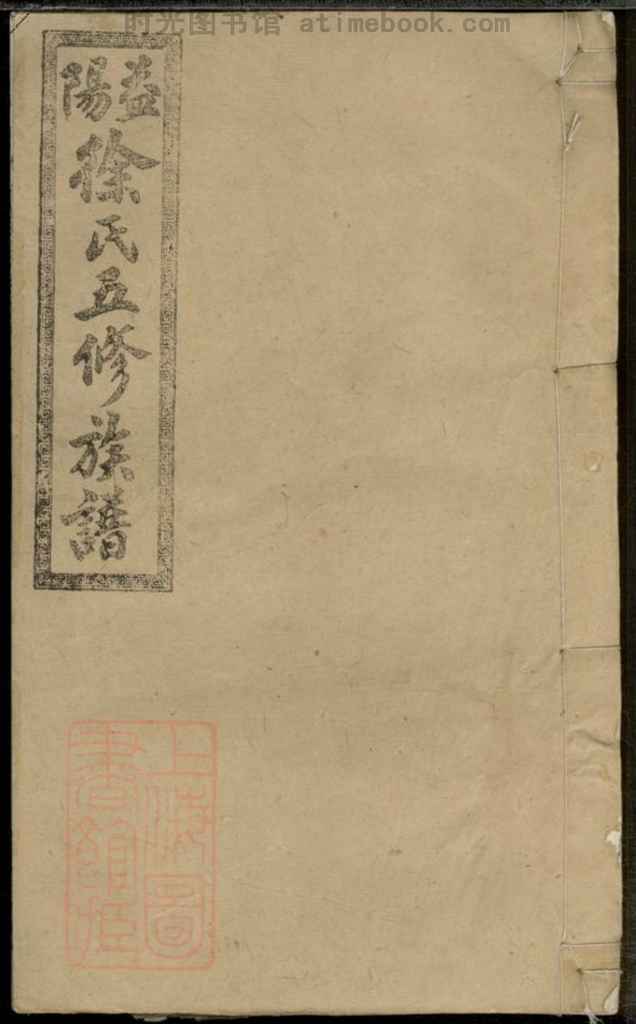 时光图书馆 atimebook.com
益陽徐氏五修族譜
上海圖書館藏